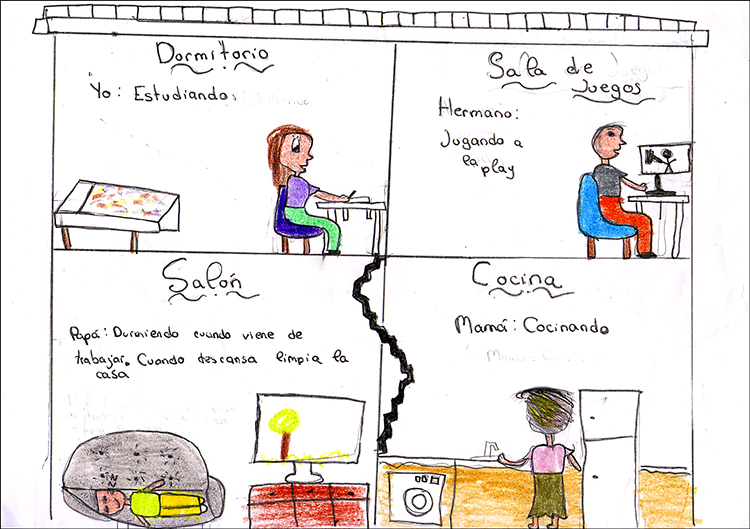 Dormitorio
Yo: Estudiando
Sala de
Juegos
Hermano:
Jugando a
la
play
Salón
Papá: Durmiendo cuando viene de
trabajar. Cuando descansa limpia la
casa
Cocina
Mamá: Cocinando